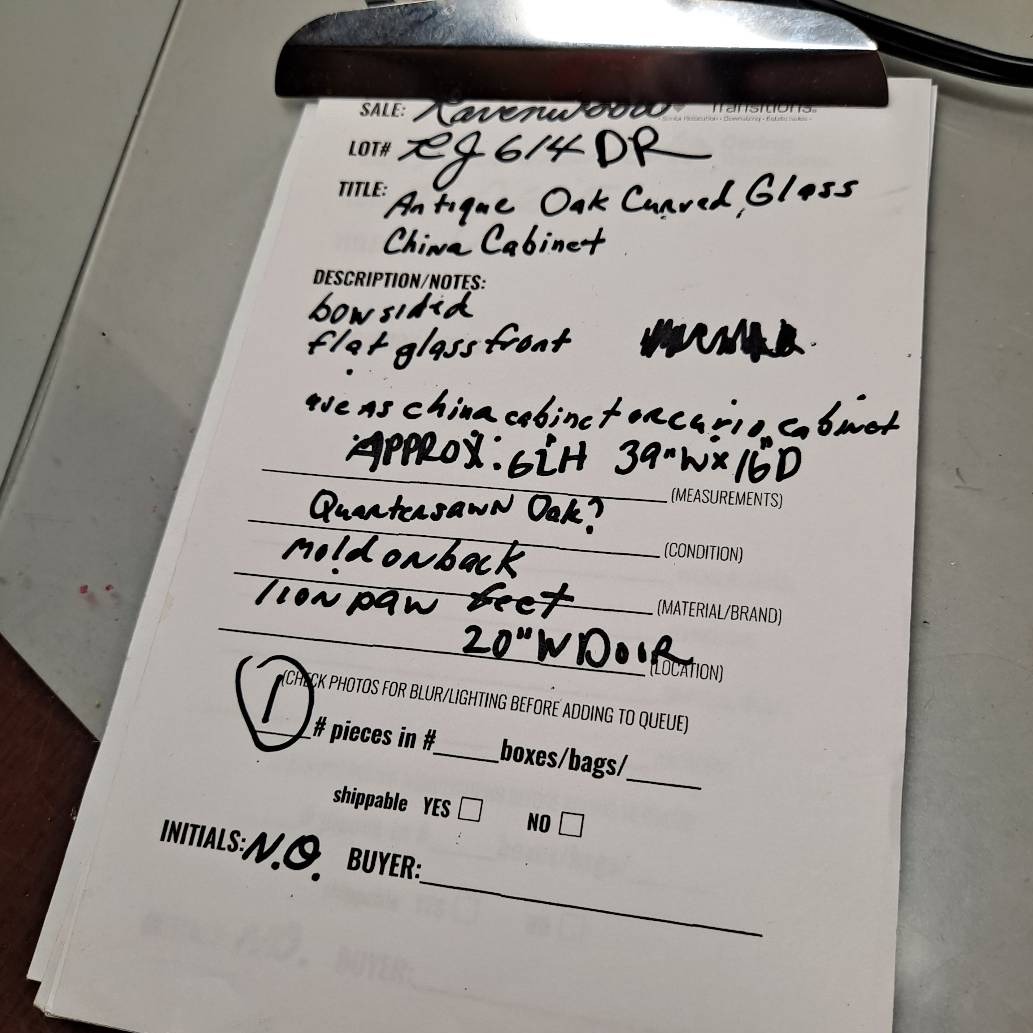 Transitions.
SALE: Ravenwood
LOT# RJ 614 DR
TITLE: Antique Oak Curved Glass
China Cabinet
DESCRIPTION/NOTES:
bow sided
flat glass front
use as china cabinet or curio cabinet
APPROX: 62"H 39"W x 16"D
(MEASUREMENTS)
Quartersawn Oak?
(CONDITION)
Mold on back
(MATERIAL/BRAND)
lion paw feet
20" W Door
(LOCATION)
(CHECK PHOTOS FOR BLUR/LIGHTING BEFORE ADDING TO QUEUE)
1 # pieces in #_____ boxes/bags/_____
shippable YES ☐ NO ☐
INITIALS: N.O. BUYER: